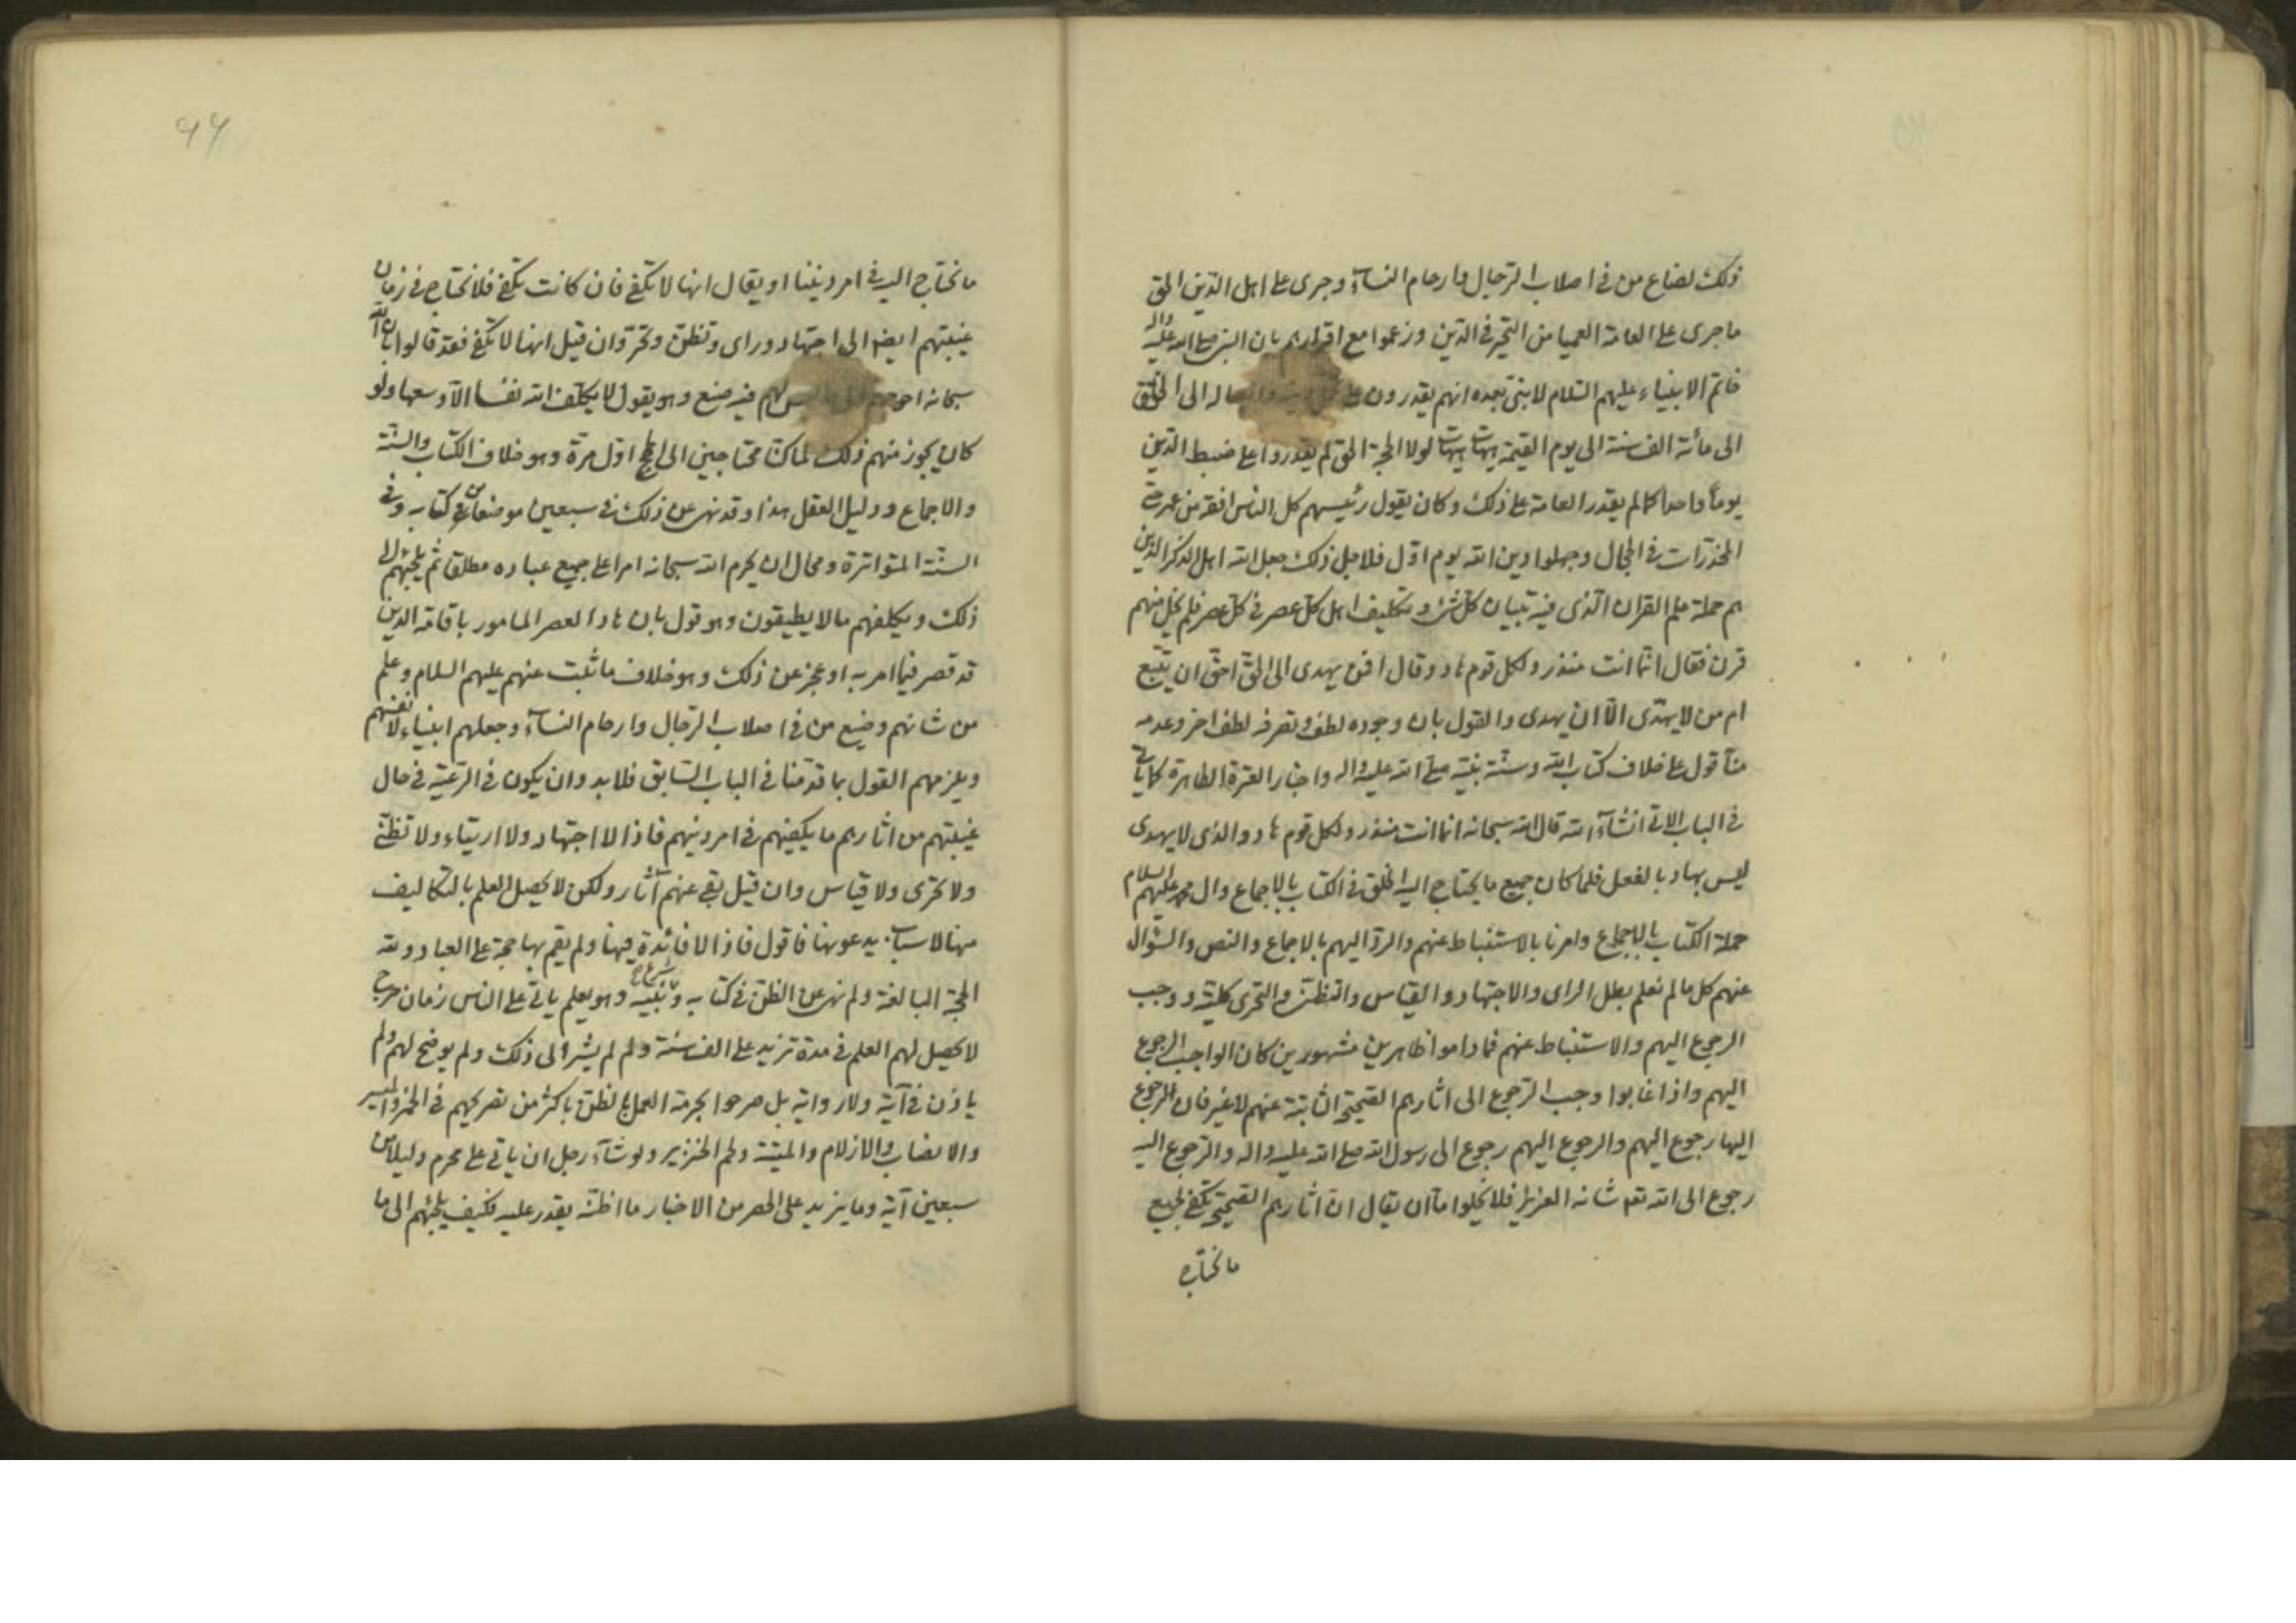 ذلك لضاع من فی اصلاب الرّجال وارحام النسآء وجری علی اهل الدّین الحق
ما جری علی العامة العمیا من التحیّر فی الدّین وزعموا مع اقرارهم بان النبی صلی الله علیه واله
خاتم الانبیاء علیهم السّلام لا نبی بعده انهم یقدرون علی الی الخلق
الی مائة الف سنة الی یوم القیمة هیهات هیهات لولا الحجة الحق لم یقدروا علی ضبط الدّین
یوماً واحداً کما لم یقدر العامة علی ذلك وکان یقول رئیسهم کل الناس افقه من عمر حتی
المخدّرات فی الحجال وجهلوا دین الله یوم اوّل فلاجل ذلك جعل الله اهل الذکر الذین
هم حملة علم القران الّذی فیه تبیان کلّ شیء وتکلیف اهل کلّ عصر فی کلّ عصر فلم یخل منهم
قرن فقال انّما انت منذر ولکل قوم هاد وقال افمن یهدی الی الحقّ احقّ ان یتّبع
ام من لا یهتدی الّا ان یهدی والقول بان وجوده لطف وتصرفه لطف اخر وعدمه
منّا قول علی خلاف کتاب الله وسنّة نبیّه صلی الله علیه واله واخبار العترة الطاهرة کما یأتی
فی الباب الاتی انشآء الله قال الله سبحانه انما انت منذر ولکل قوم هاد والذی لا یهدی
لیس بهاد بالفعل فلما کان جمیع ما یحتاج الیه الخلق فی الکتاب بالاجماع وال محمد علیهم السلام
حملة الکتاب بالاجماع وامرنا بالاستنباط عنهم والردّ الیهم بالاجماع والنص والسّؤال
عنهم کل ما لم نعلم بطل الرای والاجتهاد والقیاس والتظنّی والتحری کلیّة ووجب
الرجوع الیهم والاستنباط عنهم فما داموا ظاهرین مشهورین کان الواجب الرجوع
الیهم واذا غابوا وجب الرّجوع الی اثارهم الصّحیحة الثابتة عنهم لا غیر فان الرجوع
الیها رجوع الیهم والرجوع الیهم رجوع الی رسول الله صلی الله علیه واله والرّجوع الیه
رجوع الی الله تعه شانه العزیز فلا یخلوا امّا ان یقال ان اثارهم الصّحیحة تکفی لجمیع
ما نحتاج
۹۶
ما نحتاج الیه فی امر دیننا او یقال انها لا تکفی فان کانت تکفی فلا نحتاج فی زمان
غیبتهم ایضا الی اجتهاد ورای وتظنّ وتحرّ وان قیل انها لا تکفی فقد قالوا بان الله
سبحانه احوجهم الی ما لیس لهم فیه صنع وهو یقول لا یکلّف الله نفسا الّا وسعها ولو
کان یجوز منهم ذلك لما کنّا محتاجین الی الحجج اوّل مرّة وهو خلاف الکتاب والسنّة
والاجماع ودلیل العقل هذا وقد نهی عن ذلك فی سبعین موضعا من کتابه وفی
السنّة المتواترة ومحال ان یحرم الله سبحانه امرا علی جمیع عباده مطلقا ثم یلجئهم الی
ذلك ویکلفهم ما لا یطیقون وهو قول بان هادا لعصر المامور باقامة الدین
قد قصر فیما امر به او عجز عن ذلك وهو خلاف ما ثبت عنهم علیهم السلام وعلم
من شانهم وضیع من فی اصلاب الرّجال وارحام النسآء وجعلهم انبیاء لانفسهم
ویلزمهم القول بما قدّمنا فی الباب السّابق فلابد وان یکون فی الرّعیّة فی حال
غیبتهم من اثارهم ما یکفیهم فی امر دینهم فاذا لا اجتهاد ولا ارتیاء ولا تظنّی
ولا تحرّی ولا قیاس وان قیل بقی عنهم آثار ولکن لا یحصل العلم بالتکالیف
منها لاسباب یدعونها فاقول فاذا لا فائدة فیها ولم یقم بها حجة علی العباد ولله
الحجة البالغة ولم نهی عن الظنّ فی کتابه وسنّة نبیّه وهو یعلم یاتی علی الناس زمان حرج
لا یحصل لهم العلم فی مدة تزید علی الف سنة ولم لم یشر الی ذلك ولم یوضح لهم ولم
یاذن فی آیة ولا روایة بل صرحوا بحرمة العمل بالظنّ باکثر من تصریحهم فی الخمر والمیسر
والانصاب والازلام والمیتة ولحم الخنزیر ولو شآء رجل ان یاتی علی محرم دلیلا من
سبعین آیة وما یزید علی الحصر من الاخبار ما اظنّه یقدر علیه فکیف یلجئهم الی ما